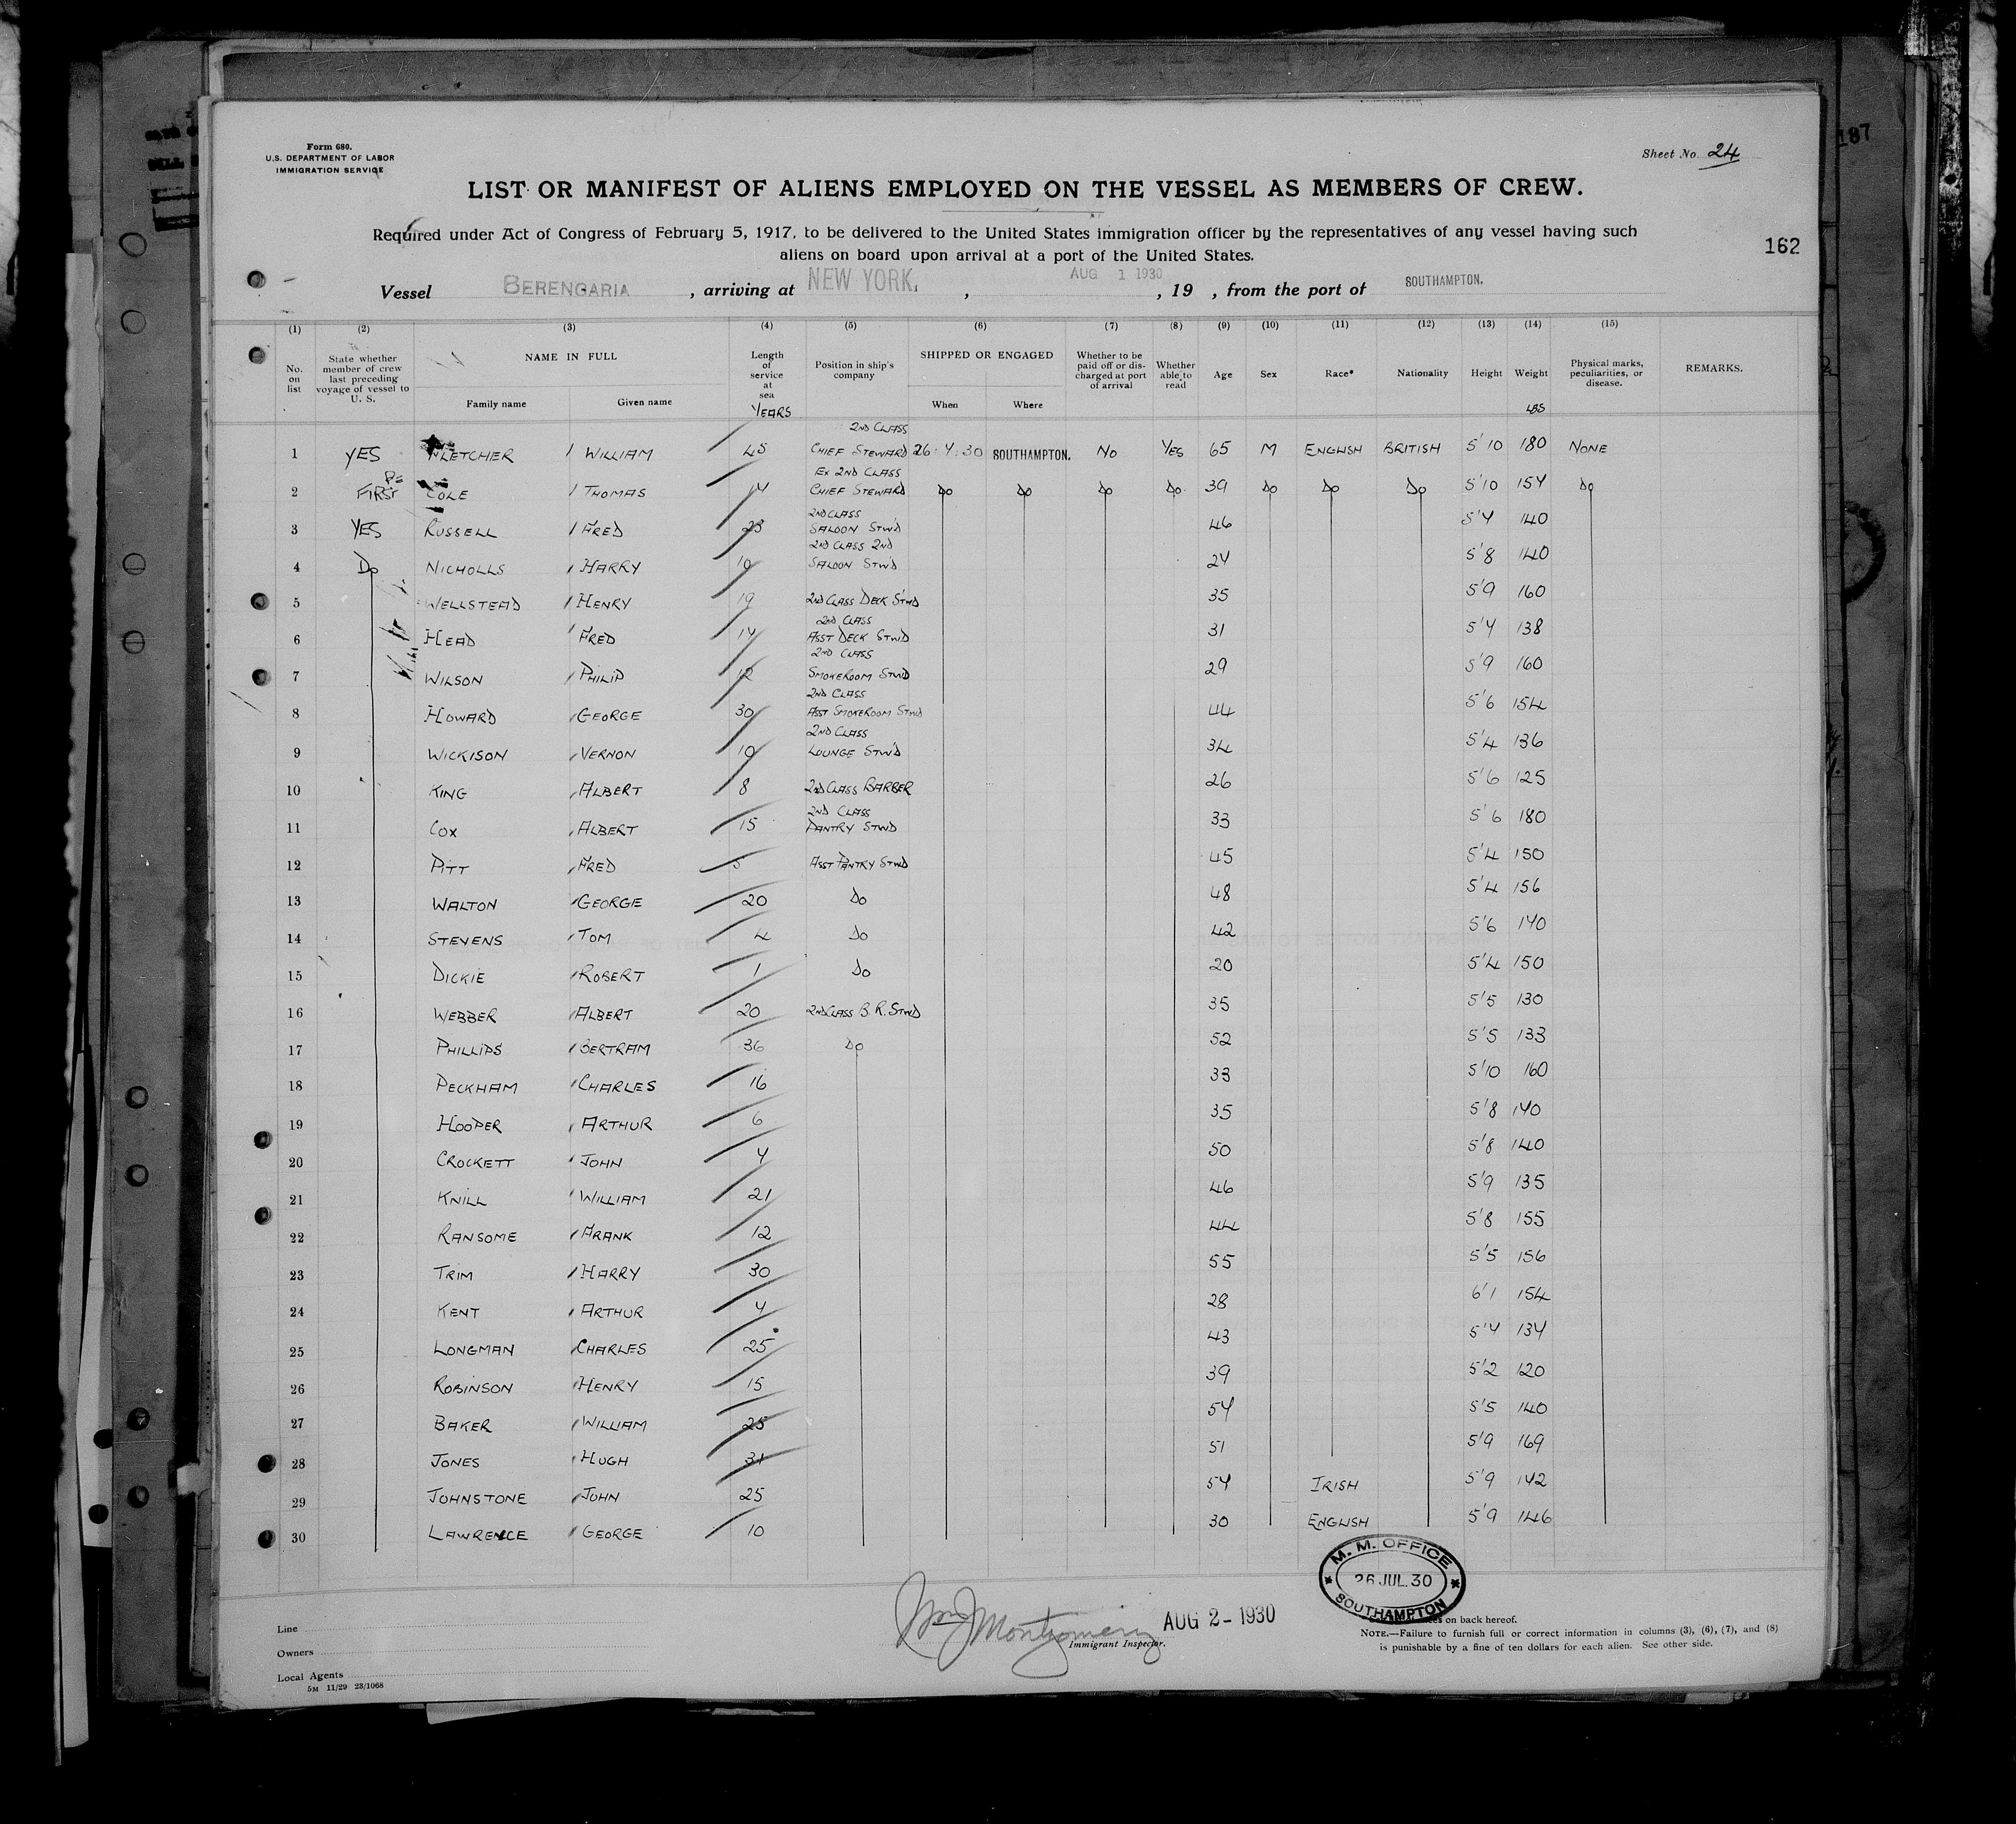 Form 680.
U.S. DEPARTMENT OF LABOR
IMMIGRATION SERVICE
Sheet No. 24
187
LIST OR MANIFEST OF ALIENS EMPLOYED ON THE VESSEL AS MEMBERS OF CREW.
Required under Act of Congress of February 5, 1917, to be delivered to the United States immigration officer by the representatives of any vessel having such
aliens on board upon arrival at a port of the United States.
162
Vessel BERENGARIA, arriving at NEW YORK, , AUG 1 1930, 19 , from the port of SOUTHAMPTON.
(1) (2) (3) (4) (5) (6) (7) (8) (9) (10) (11) (12) (13) (14) (15)
No. on list State whether member of crew last preceding voyage of vessel to U. S. NAME IN FULL Family name Given name Length of service at sea YEARS Position in ship's company SHIPPED OR ENGAGED When Where Whether to be paid off or discharged at port of arrival Whether able to read Age Sex Race* Nationality Height Weight LBS Physical marks, peculiarities, or disease. REMARKS.
1 YES FLETCHER WILLIAM 45 2ND CLASS CHIEF STEWARD 26·4·30 SOUTHAMPTON. NO YES 65 M ENGLISH BRITISH 5'10 180 NONE
2 FIRST COLE THOMAS 14 EX 2ND CLASS CHIEF STEWARD DO DO DO DO 39 DO DO DO 5'10 154 DO
3 YES RUSSELL FRED 23 2ND CLASS SALOON STWD 46 5'4 140
4 DO NICHOLLS HARRY 10 2ND CLASS 2ND SALOON STWD 24 5'8 140
5 WELLSTEAD HENRY 19 2ND CLASS DECK STWD 35 5'9 160
6 HEAD FRED 14 2ND CLASS ASST DECK STWD 31 5'4 138
7 WILSON PHILIP 12 2ND CLASS SMOKEROOM STWD 29 5'9 160
8 HOWARD GEORGE 30 2ND CLASS ASST SMOKEROOM STWD 44 5'6 154
9 WICKISON VERNON 10 2ND CLASS LOUNGE STWD 34 5'4 136
10 KING ALBERT 8 2ND CLASS BARBER 26 5'6 125
11 COX ALBERT 15 2ND CLASS PANTRY STWD 33 5'6 180
12 PITT FRED 5 ASST PANTRY STWD 45 5'4 150
13 WALTON GEORGE 20 DO 48 5'4 156
14 STEVENS TOM 4 DO 42 5'6 140
15 DICKIE ROBERT 1 DO 20 5'4 150
16 WEBBER ALBERT 20 2ND CLASS B.R. STWD 35 5'5 130
17 PHILLIPS BERTRAM 36 DO 52 5'5 133
18 PECKHAM CHARLES 16 33 5'10 160
19 HOOPER ARTHUR 6 35 5'8 140
20 CROCKETT JOHN 4 50 5'8 140
21 KNILL WILLIAM 21 46 5'9 135
22 RANSOME FRANK 12 44 5'8 155
23 TRIM HARRY 30 55 5'5 156
24 KENT ARTHUR 4 28 6'1 154
25 LONGMAN CHARLES 25 43 5'4 134
26 ROBINSON HENRY 15 39 5'2 120
27 BAKER WILLIAM 25 54 5'5 140
28 JONES HUGH 31 51 5'9 169
29 JOHNSTONE JOHN 25 54 IRISH 5'9 142
30 LAWRENCE GEORGE 10 30 ENGLISH 5'9 146
M. M. OFFICE
26 JUL. 30
SOUTHAMPTON
Line
Owners
Local Agents
5M 11/29 23/1068
Wm J Montgomery
Immigrant Inspector.
AUG 2 - 1930
on back hereof.
NOTE.—Failure to furnish full or correct information in columns (3), (6), (7), and (8)
is punishable by a fine of ten dollars for each alien. See other side.